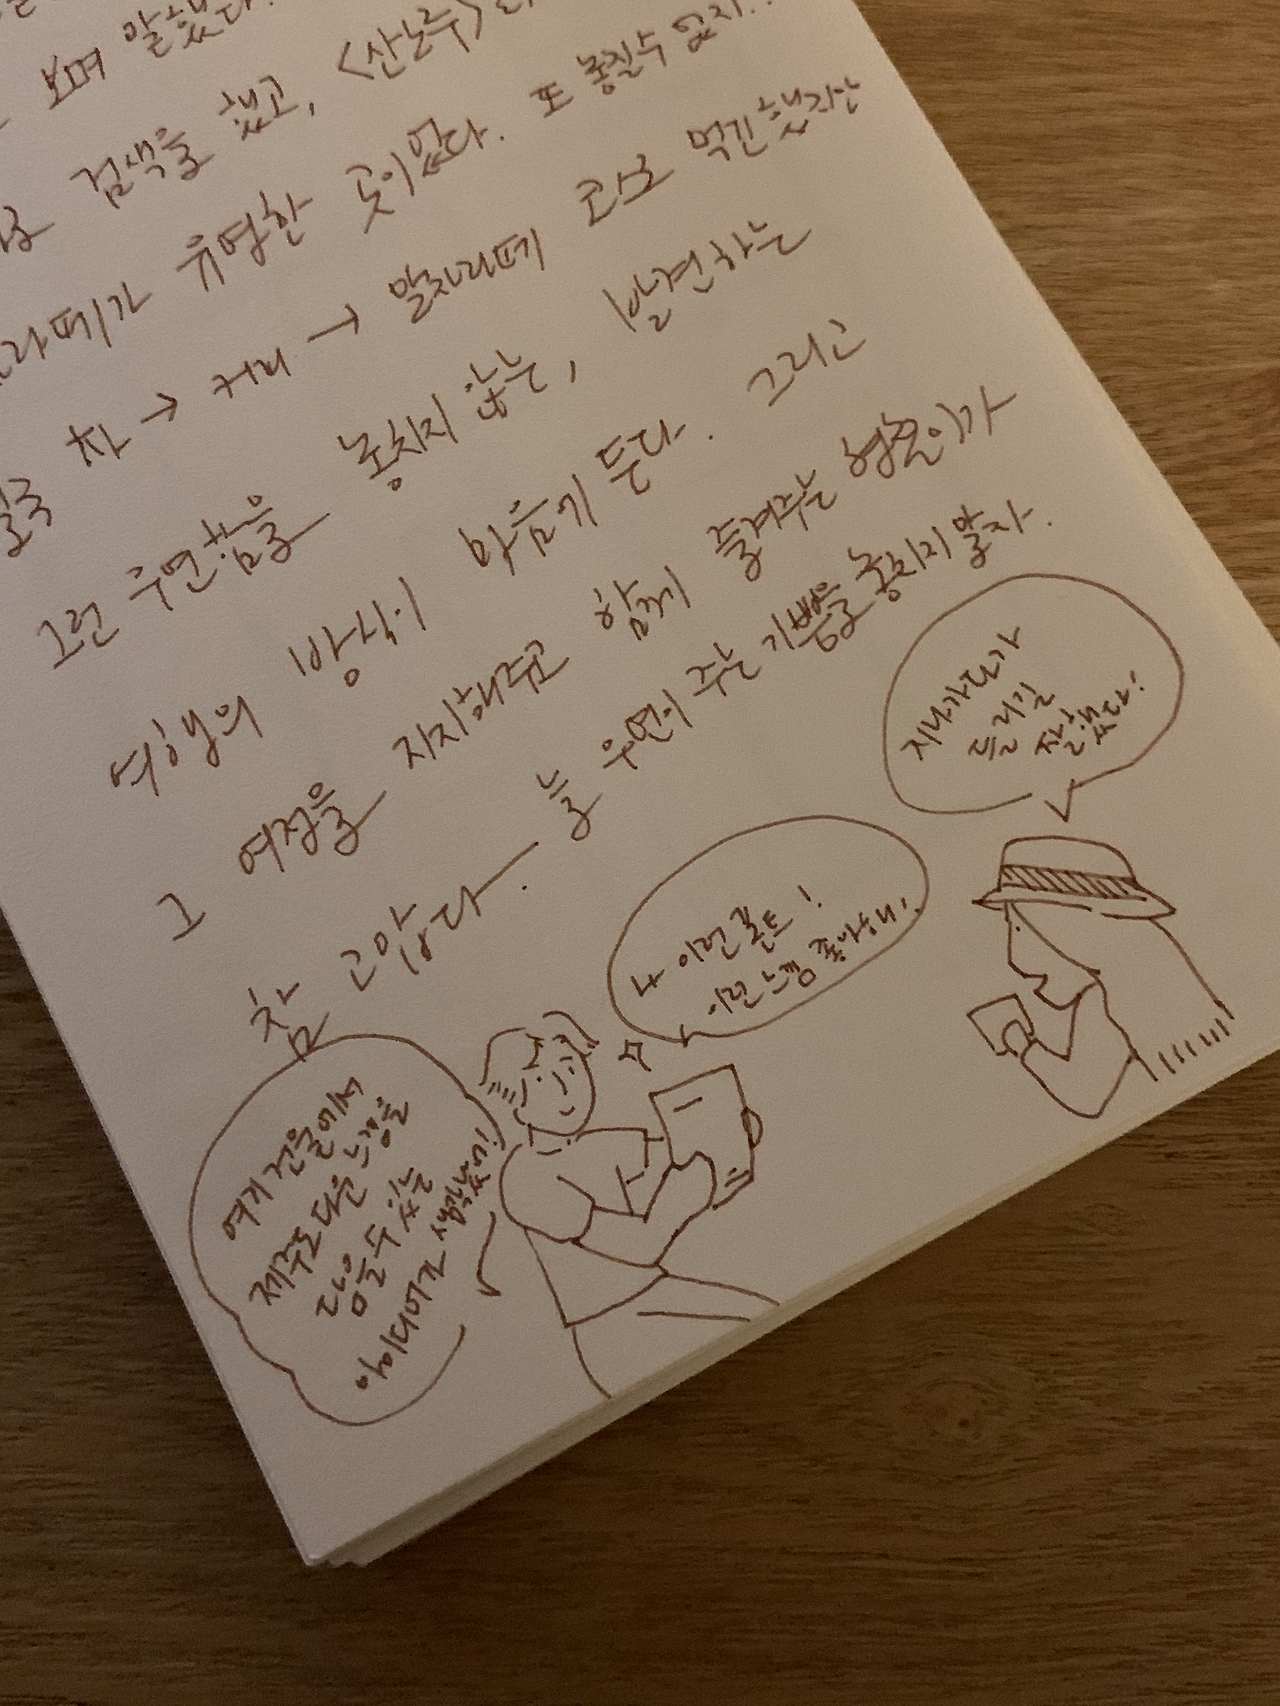 보며 말했다.
검색을 했고, <산노루>
라떼가 유명한 곳이었다. 또 놓칠수 없지..
차 → 커피 → 말차라떼 코스로 먹긴했지만
그런 우연함을 놓치지 않는, 발견하는
여행의 방식이 마음에 든다. 그리고
그 여정을 지지해주고 함께 들려주는 형준이가
참 고맙다. 늘 우연이 주는 기쁨을 놓치지 말자.
지나가다가
들리길
잘했다!
나 이런 폰트!
이런 느낌 좋아해!
여기 건물에서
제주도다운 느낌을
담을 수 있는
아이디어가 생각났어!